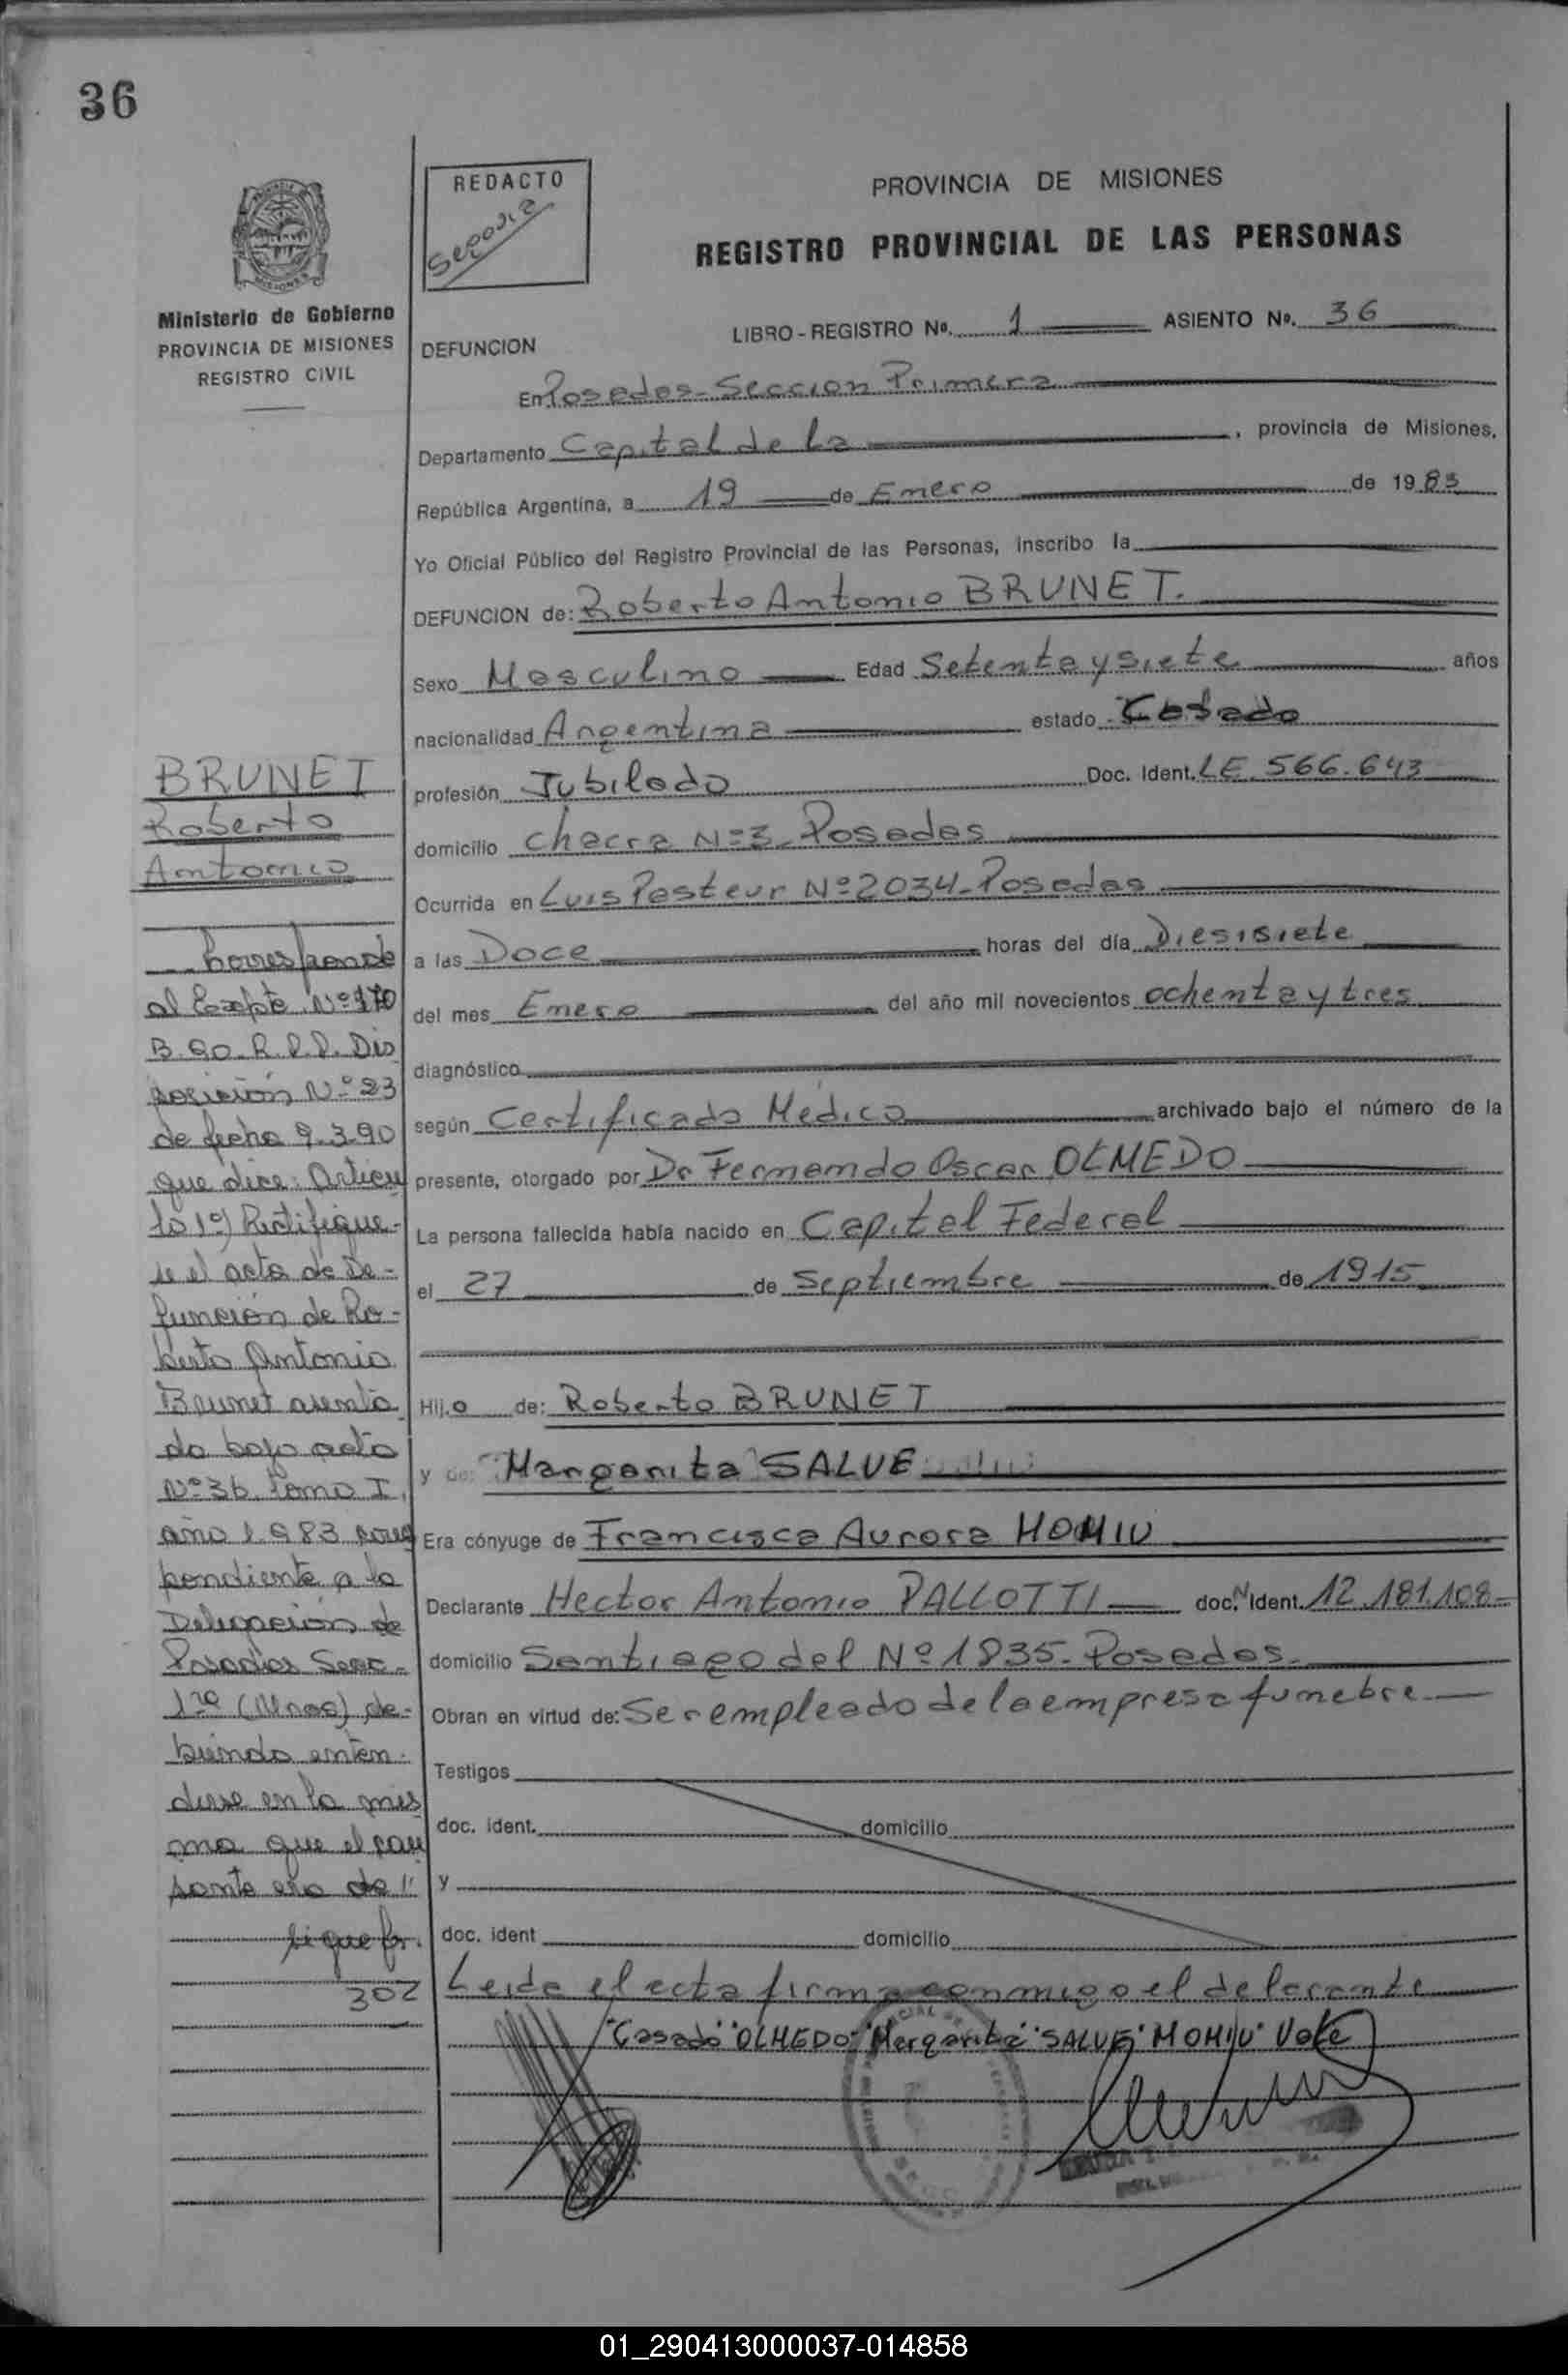 36
REDACTO
Segovia
PROVINCIA DE MISIONES
REGISTRO PROVINCIAL DE LAS PERSONAS
Ministerio de Gobierno
PROVINCIA DE MISIONES
REGISTRO CIVIL
DEFUNCION
LIBRO-REGISTRO Nº. 1 ASIENTO Nº. 36
En Posadas-Seccion Primera
Departamento Capital de la, provincia de Misiones,
República Argentina, a 19 de Enero de 1983
Yo Oficial Público del Registro Provincial de las Personas, inscribo la
DEFUNCION de: Roberto Antonio BRUNET.
Sexo Masculino Edad Setenta y siete años
nacionalidad Argentina estado Casado
profesión Jubilado Doc. Ident. LE. 566.643
domicilio chacra Nº3-Posadas
Ocurrida en Luis Pasteur Nº2034-Posadas
a las Doce horas del día Diesisiete
del mes Enero del año mil novecientos ochenta y tres
diagnóstico
según Certificado Médico archivado bajo el número de la
presente, otorgado por Dr Fernando Oscar OLMEDO
La persona fallecida había nacido en Capital Federal
el 27 de Septiembre de 1915
Hijo de: Roberto BRUNET
y de: Margarita SALVE
Era cónyuge de Francisca Aurora MOMIU
Declarante Hector Antonio PALLOTTI doc. Ident. 12.181.108-
domicilio Santiago del Nº1835-Posadas.
Obran en virtud de: Ser empleado de la empresa funebre
Testigos
doc. ident. domicilio
y
doc. ident domicilio
Leida el acta firma conmigo el delarante
"Casado" "OLMEDO" "Margarita" "SALVE" "MOMIU" Vale
BRUNET
Roberto
Antonio
Corresponde
al Expte. Nº170
B.90.R.P.P. Dis
posición Nº23
de fecha 9.3.90
que dice: Artícu
lo 1º) Rectifique-
se el acta de De-
función de Ro-
berto Antonio
Brunet asenta
do bajo acta
Nº36 tomo I,
año 1983 corres
pondiente a la
Delegación de
Posadas Secc.
1ra (Mnes) de-
biendo enten-
derse en la mis
ma que el cau
sante era de "
sigue fs.
302
01_290413000037-014858